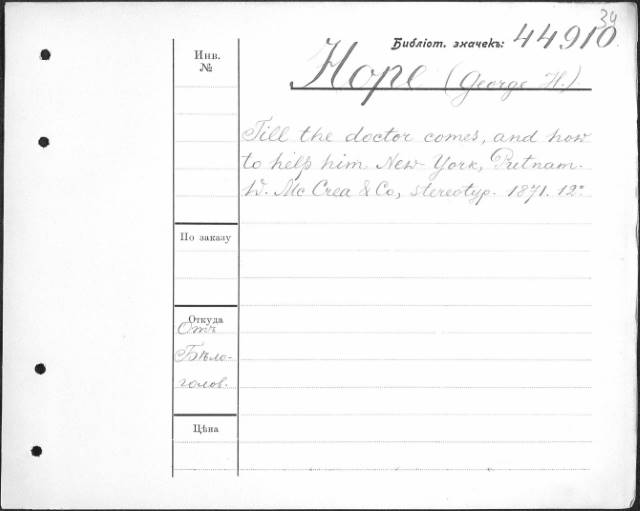 34
Библіот. значекъ: 44910
Инв.
№
Hope (George H.)
Till the doctor comes, and how
to help him New York, Putnam.
W. Mc Crea & Co, stereotyp. 1871. 12º
По заказу
Откуда
Отъ
Бѣло-
голов.
Цѣна